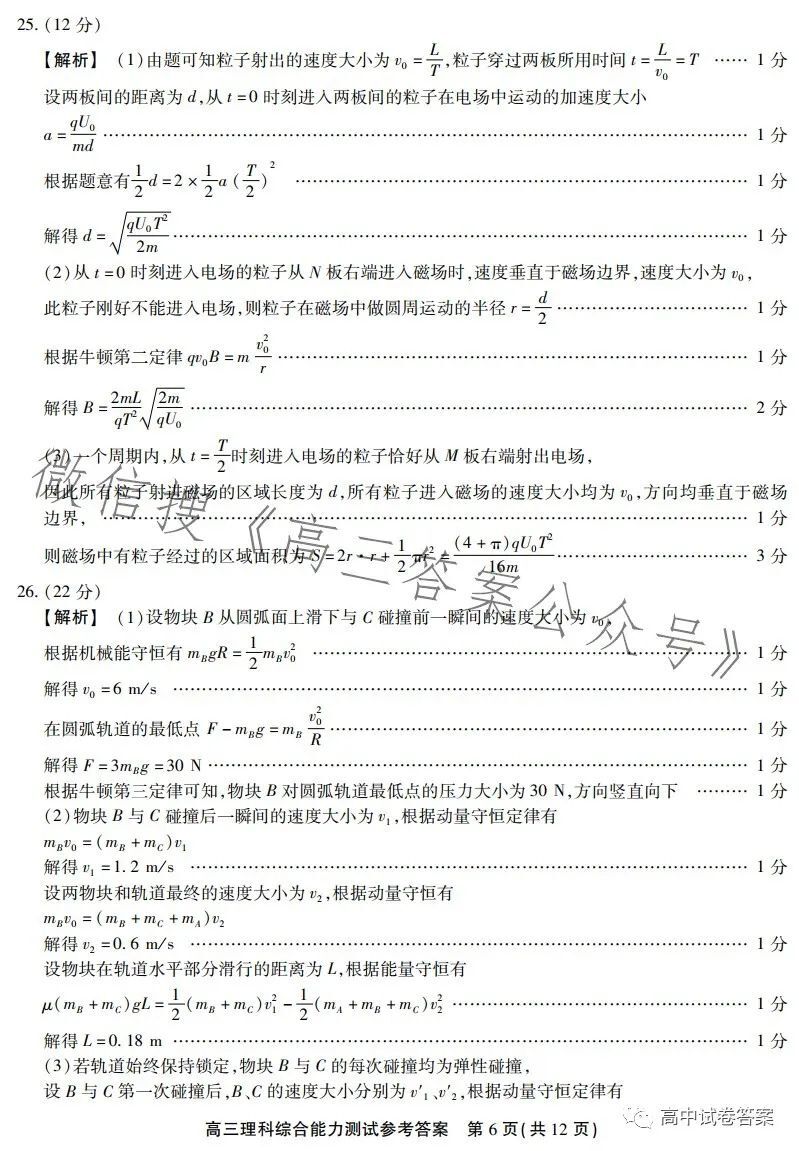 25. (12 分)
【解析】 (1)由题可知粒子射出的速度大小为 v₀ = L/T,粒子穿过两板所用时间 t = L/v₀ = T …… 1 分
设两板间的距离为 d,从 t = 0 时刻进入两板间的粒子在电场中运动的加速度大小
a = qU₀/md …… 1 分
根据题意有 1/2 d = 2 × 1/2 a (T/2)² …… 1 分
解得 d = √(qU₀T²/2m) …… 1 分
(2)从 t = 0 时刻进入电场的粒子从 N 板右端进入磁场时,速度垂直于磁场边界,速度大小为 v₀,
此粒子刚好不能进入电场,则粒子在磁场中做圆周运动的半径 r = d/2 …… 1 分
根据牛顿第二定律 qv₀B = m v₀²/r …… 1 分
解得 B = 2mL/qT² √(2m/qU₀) …… 2 分
(3)一个周期内,从 t = T/2 时刻进入电场的粒子恰好从 M 板右端射出电场,
因此所有粒子射进磁场的区域长度为 d,所有粒子进入磁场的速度大小均为 v₀,方向均垂直于磁场
边界, …… 1 分
则磁场中有粒子经过的区域面积为 S = 2r · r + 1/2 πr² = (4 + π)qU₀T²/16m …… 3 分
26. (22 分)
【解析】 (1)设物块 B 从圆弧面上滑下与 C 碰撞前一瞬间的速度大小为 v₀,
根据机械能守恒有 m_BgR = 1/2 m_Bv₀² …… 1 分
解得 v₀ = 6 m/s …… 1 分
在圆弧轨道的最低点 F − m_Bg = m_B v₀²/R …… 1 分
解得 F = 3m_Bg = 30 N …… 1 分
根据牛顿第三定律可知,物块 B 对圆弧轨道最低点的压力大小为 30 N,方向竖直向下 …… 1 分
(2)物块 B 与 C 碰撞后一瞬间的速度大小为 v₁,根据动量守恒定律有
m_Bv₀ = (m_B + m_C)v₁
解得 v₁ = 1.2 m/s …… 1 分
设两物块和轨道最终的速度大小为 v₂,根据动量守恒有
m_Bv₀ = (m_B + m_C + m_A)v₂
解得 v₂ = 0.6 m/s …… 1 分
设物块在轨道水平部分滑行的距离为 L,根据能量守恒有
μ(m_B + m_C)gL = 1/2 (m_B + m_C)v₁² − 1/2 (m_A + m_B + m_C)v₂² …… 1 分
解得 L = 0.18 m …… 1 分
(3)若轨道始终保持锁定,物块 B 与 C 的每次碰撞均为弹性碰撞,
设 B 与 C 第一次碰撞后,B、C 的速度大小分别为 v′₁、v′₂,根据动量守恒定律有
高三理科综合能力测试参考答案 第 6 页(共 12 页)
微信搜《高三答案公众号》
高中试卷答案